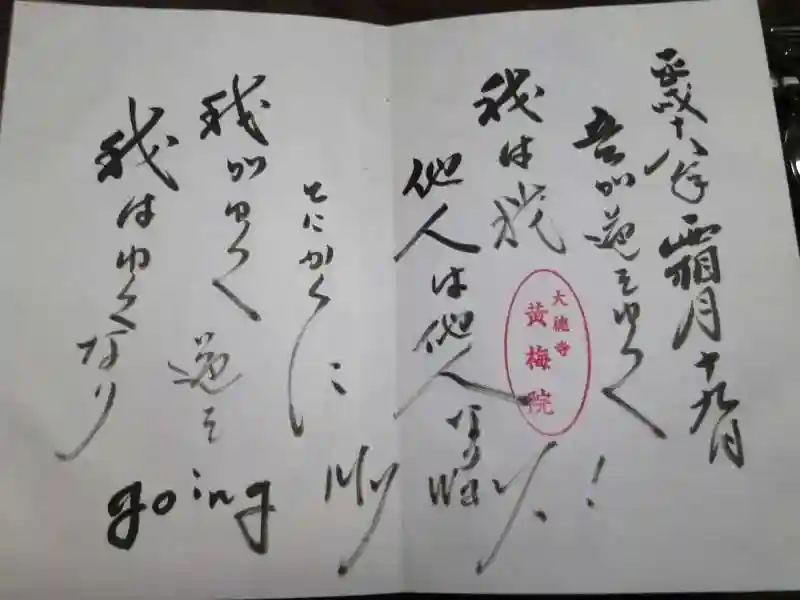 平成十八年霜月十九日
吾が道をゆく
我は我
他人は他人なり
とにかくに
我がゆく道を
我はゆくなり
going My Way、!
大徳寺
黄梅院